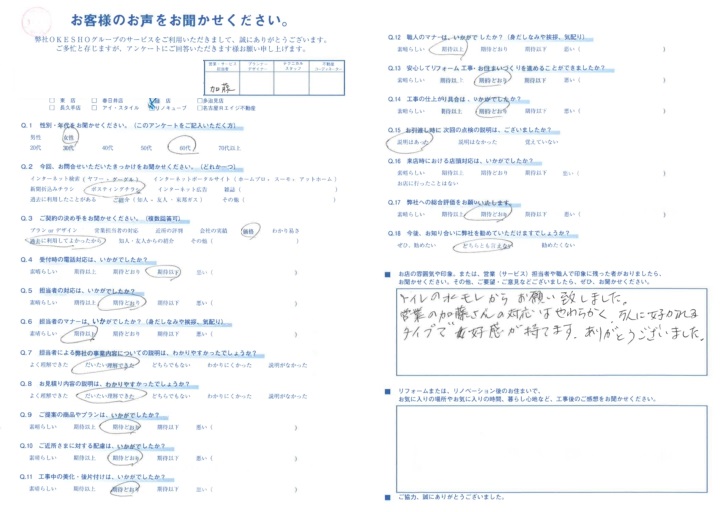 お客様のお声をお聞かせください。
弊社OKESHOグループのサービスをご利用いただきまして、誠にありがとうございます。
ご多忙と存じますが、アンケートにご回答いただきます様お願い申し上げます。
加藤
Q.1 性別・年代をお聞かせください。(このアンケートをご記入いただく方)
男性 女性
20代 30代 40代 50代 60代 70代以上
Q.2 今回、お問合せいただいたきっかけをお聞かせください。(どれか一つ)
インターネット検索(ヤフー・グーグル) インターネットポータルサイト(ホームプロ、スーモ、アットホーム)
新聞折込みチラシ ポスティングチラシ インターネット広告 雑誌( )
過去に利用したことがある ご紹介(知人・友人・東邦ガス) その他( )
Q.3 ご契約の決め手をお聞かせください。(複数回答可)
プラン or デザイン 営業担当者の対応 近所の評価 会社の実績 価格 わかり易さ
過去に利用してよかったから 知人・友人からの紹介 その他( )
Q.4 受付時の電話対応は、いかがでしたか?
素晴らしい 期待以上 期待どおり 期待以下 悪い( )
Q.5 担当者の対応は、いかがでしたか?
素晴らしい 期待以上 期待どおり 期待以下 悪い( )
Q.6 担当者のマナーは、いかがでしたか?(身だしなみや挨拶、気配り)
素晴らしい 期待以上 期待どおり 期待以下 悪い( )
Q.7 担当者による弊社の事業内容についての説明は、わかりやすかったでしょうか?
よく理解できた だいたい理解できた どちらでもない わかりにくかった 説明がなかった
Q.8 お見積り内容の説明は、わかりやすかったでしょうか?
よく理解できた だいたい理解できた どちらでもない わかりにくかった 説明がなかった
Q.9 ご提案の商品やプランは、いかがでしたか?
素晴らしい 期待以上 期待どおり 期待以下 悪い( )
Q.10 ご近所さまに対する配慮は、いかがでしたか?
素晴らしい 期待以上 期待どおり 期待以下 悪い( )
Q.11 工事中の美化・後片付けは、いかがでしたか?
素晴らしい 期待以上 期待どおり 期待以下 悪い( )
Q.12 職人のマナーは、いかがでしたか?(身だしなみや挨拶、気配り)
素晴らしい 期待以上 期待どおり 期待以下 悪い( )
Q.13 安心してリフォーム工事・お住まいづくりを進めることができましたか?
素晴らしい 期待以上 期待どおり 期待以下 悪い( )
Q.14 工事の仕上がり具合は、いかがでしたか?
素晴らしい 期待以上 期待どおり 期待以下 悪い( )
Q.15 お引渡し時に 次回の点検の説明は、ございましたか?
説明はあった 説明はなかった 覚えていない
Q.16 来店時における店舗対応は、いかがでしたか?
素晴らしい 期待以上 期待どおり 期待以下 悪い( )
お店に行ったことはない
Q.17 弊社への総合評価をお願いいたします。
素晴らしい 期待以上 期待どおり 期待以下 悪い( )
Q.18 今後、お知り合いに弊社を勧めていただけますでしょうか?
ぜひ、勧めたい どちらとも言えない 勧めたくない
■ お店の雰囲気や印象。または、営業(サービス)担当者や職人で印象に残った者がおりましたら、
お聞かせください。その他、ご要望・ご意見などございましたら、ぜひ、お聞かせください。
トイレの水モレから お願い致しました。
営業の加藤さんの対応はやわらかく、万人に好かれる
タイプで 好感が持てます。ありがとうございました。
■ リフォームまたは、リノベーション後のお住まいで、
お気に入りの場所やお気に入りの時間、暮らし心地など、工事後のご感想をお聞かせください。
■ ご協力、誠にありがとうございました。